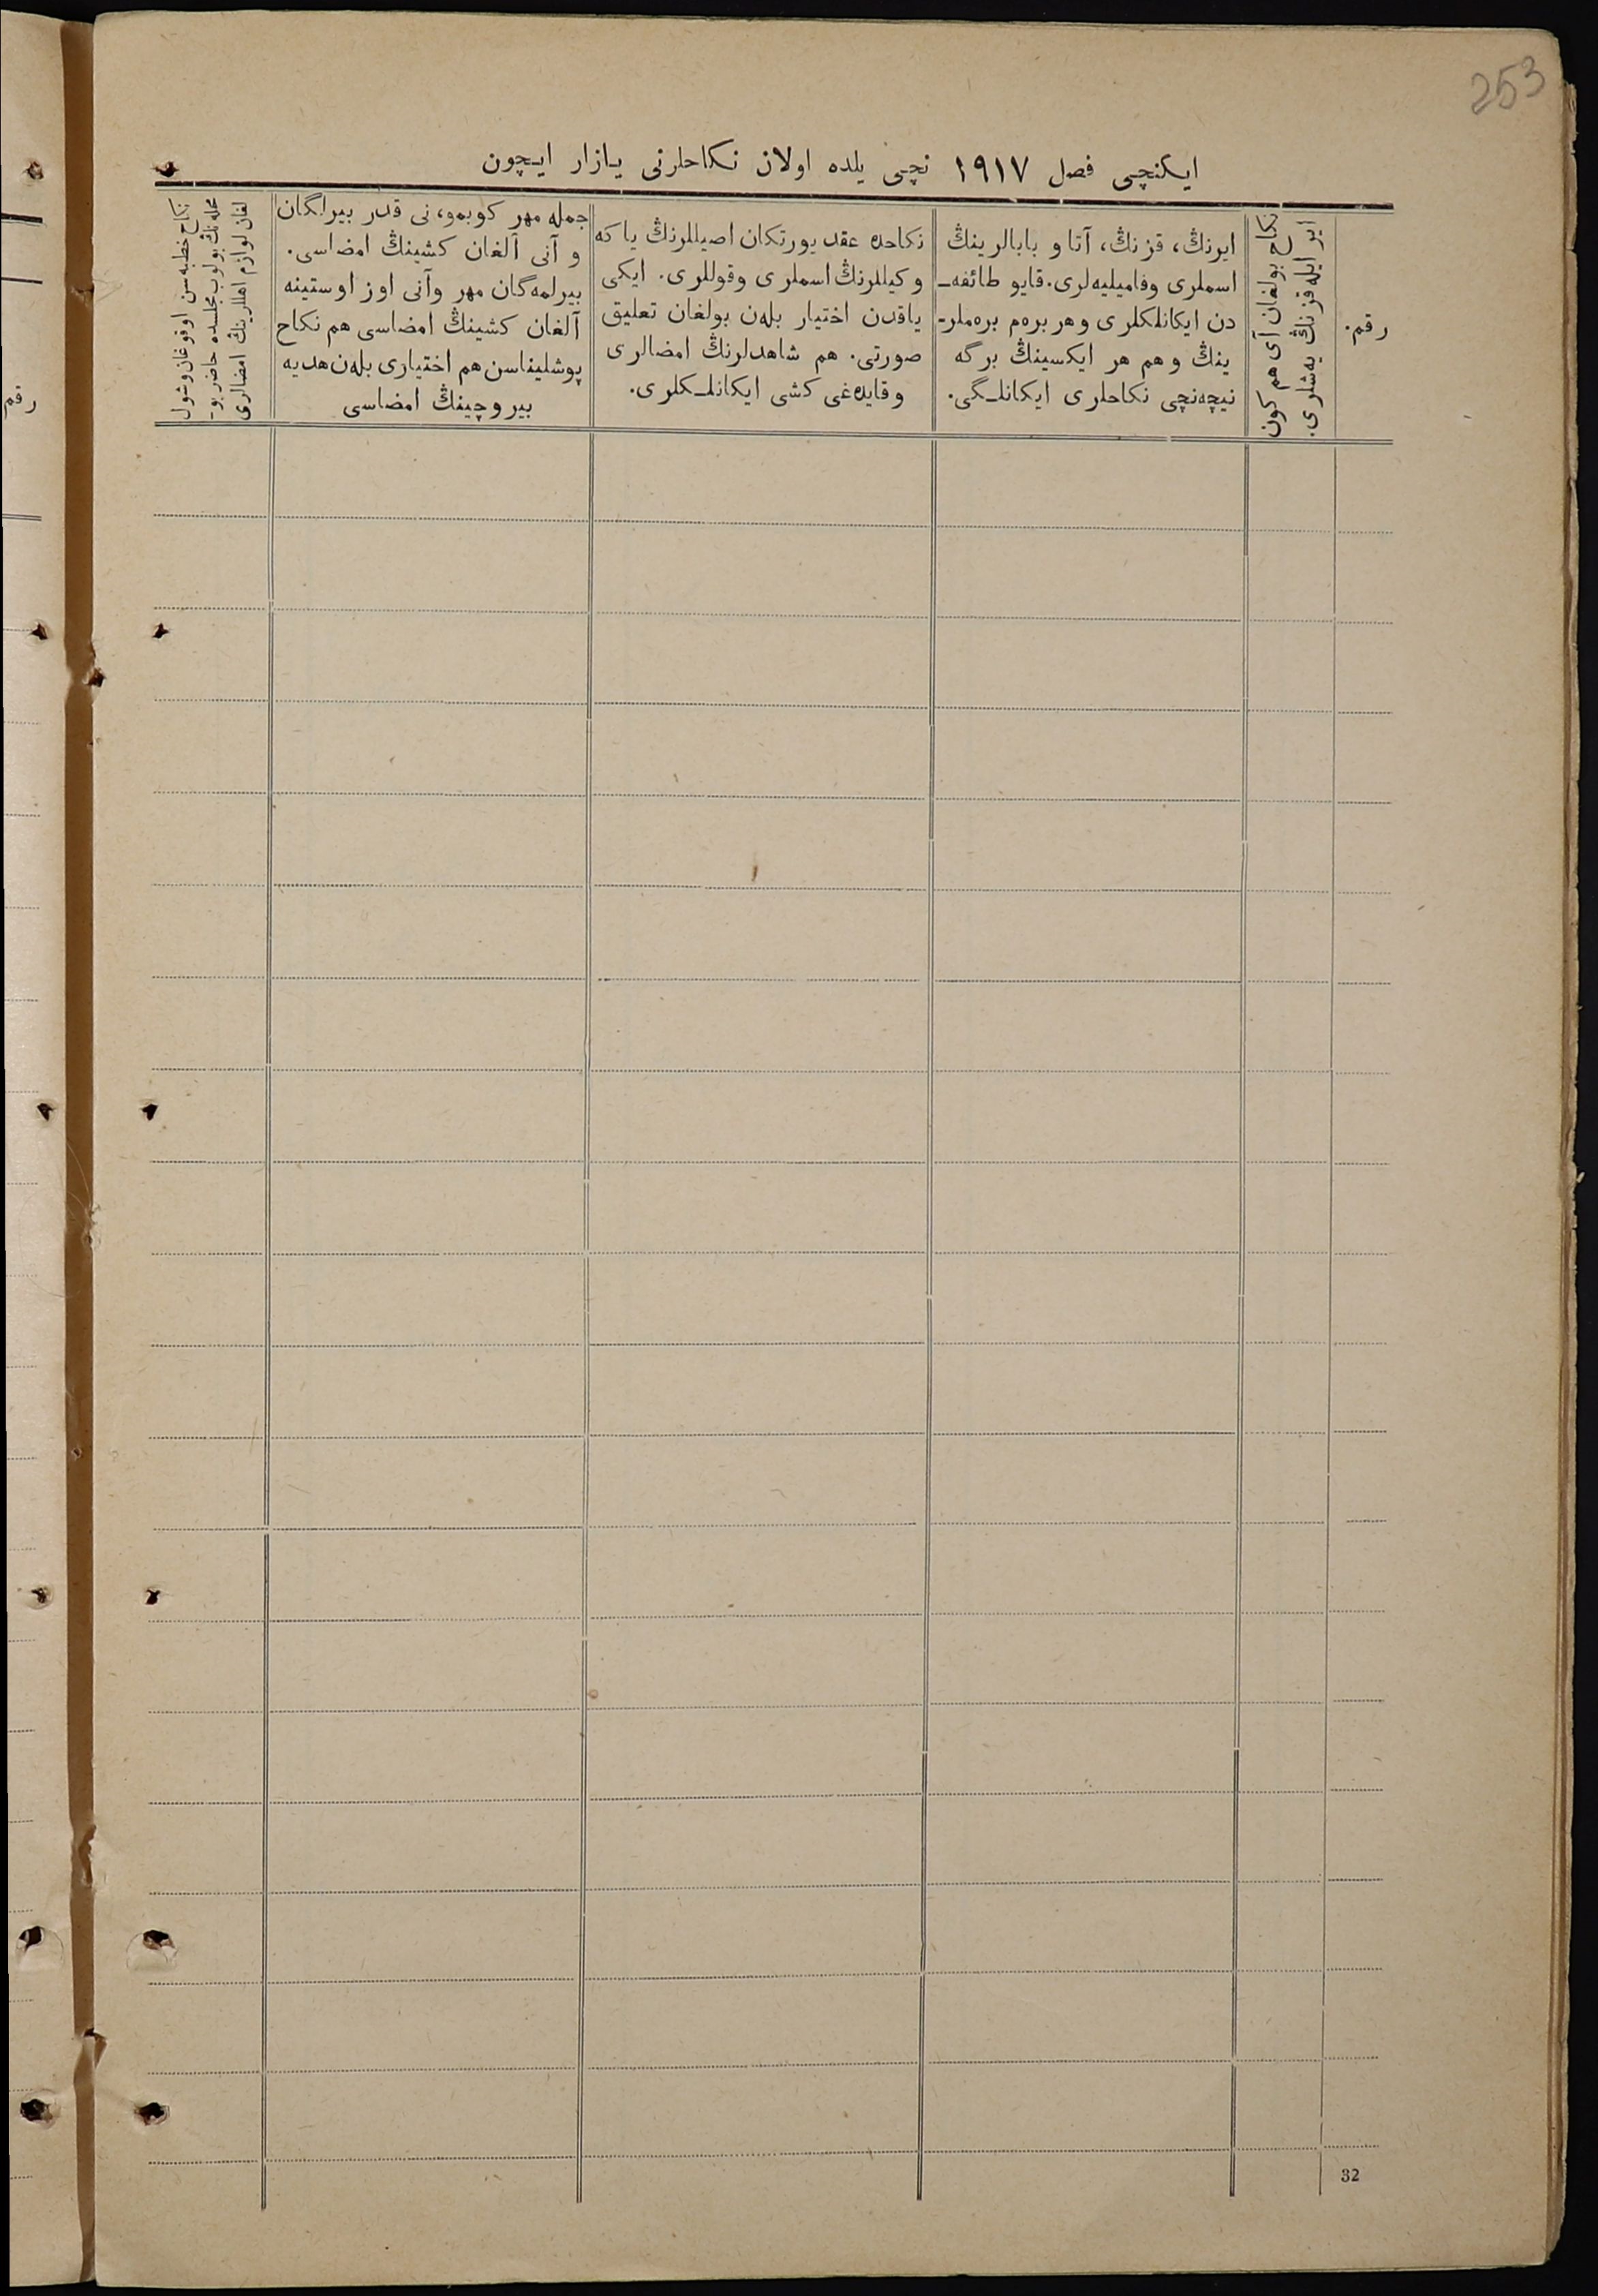 253
ایکنچی فصل ١٩١٧ نچی یلده اولان نکاحلرنی یازار ایچون
رقم.
نکاح بولغان آی هم کون
ایر ایله قزنڭ یه‌شلری.
ایرنڭ، قزنڭ، آتا و بابالرینڭ
اسملری وفامیلیه‌لری. قایو طائفه‌ـ
دن ایکانلکلری وهر بره‌م بره‌ملرـ
ینڭ وهم هر ایکسینڭ برگه
نیچه‌نچی نکاحلری ایکانلـگی.
نکاحده عقد یورتکان اصیللرنڭ یاکه
وکیللرنڭ اسملری وقوللری. ایکی
یاقدن اختیار بله‌ن بولغان تعلیق
صورتی. هم شاهدلرنڭ امضالری
وقایده‌غی کشی ایکانلـکلری.
جمله مهر کوبمو، نی قدر بیرلگان
و آنی آلغان کشینڭ امضاسی.
بیرلمه‌گان مهر وآنی اوز اوستینه
آلغان کشینڭ امضاسی هم نکاح
پوشلیناسن هم اختیاری بله‌ن هدیه
بیروچینڭ امضاسی
نکاح خطبه‌سن اوقوغان وشول
محله‌نڭ بولوب مجلسده حاضر بوـ
لغان لوازم اهللرینڭ امضالری
رقم
32